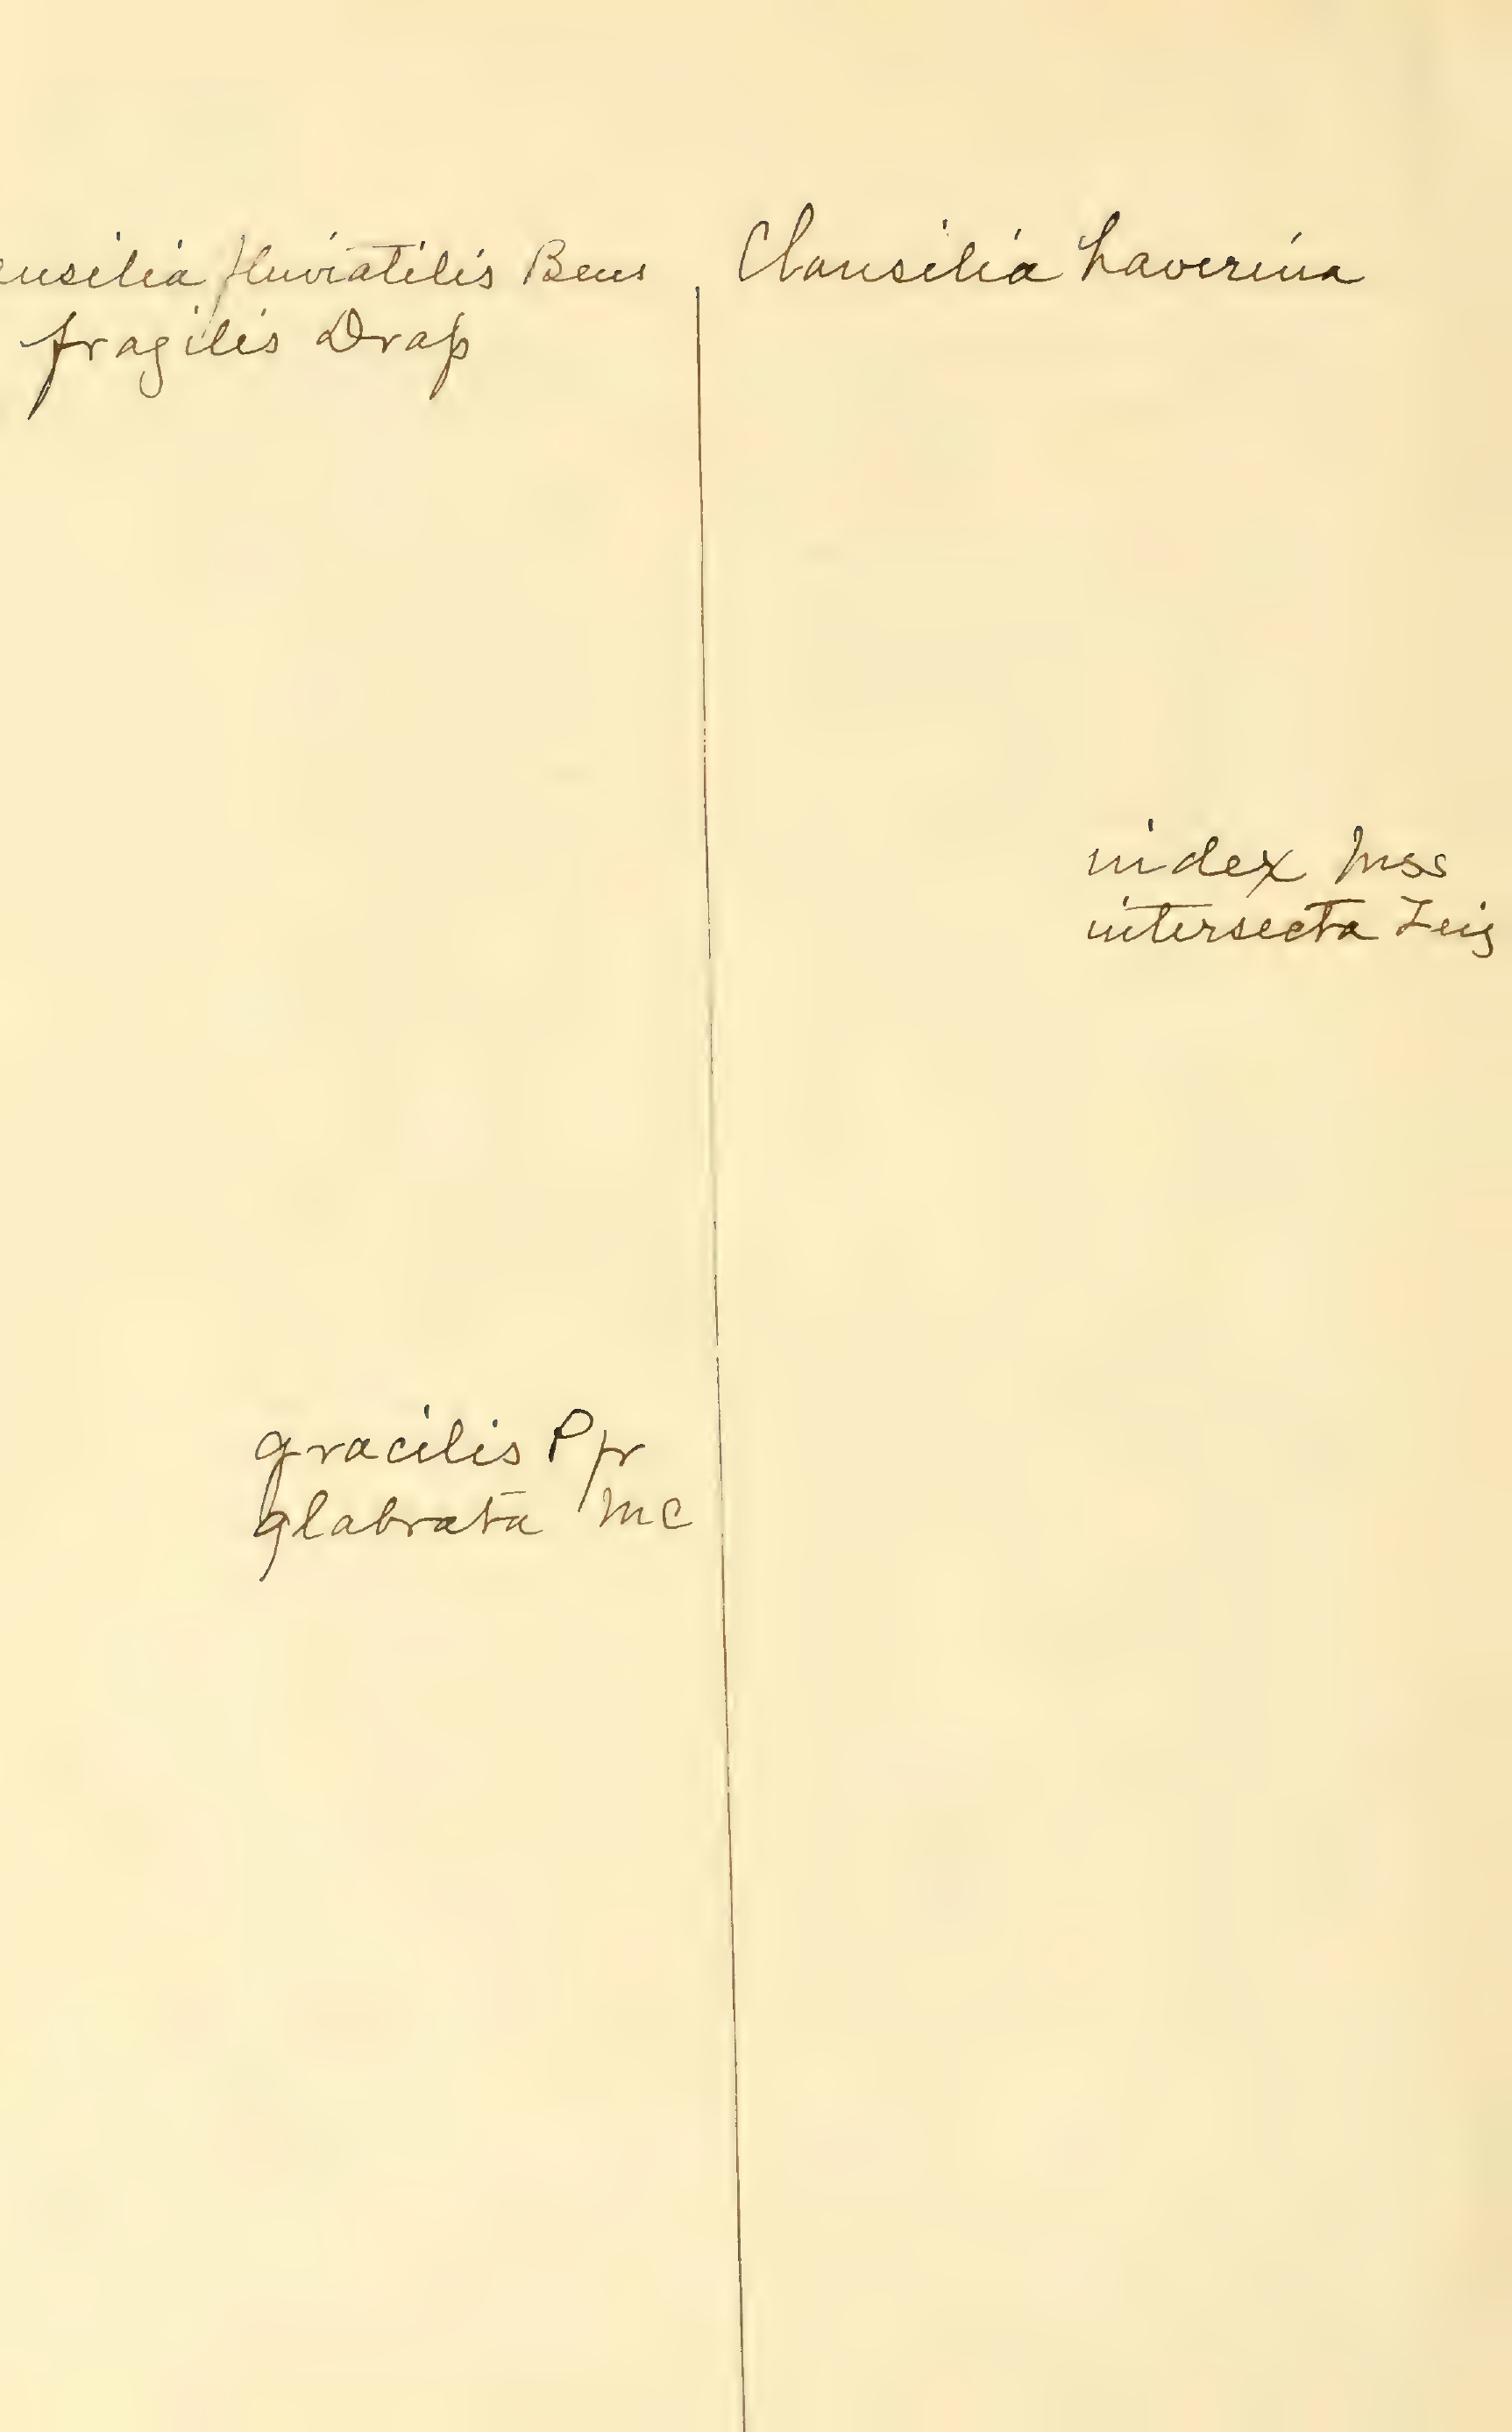 ausilia fluviatilis Bens
fragilis Drap
gracilis Pfr
glabrata MC
Clausilia haverina
index Mss
intersecta Zeig